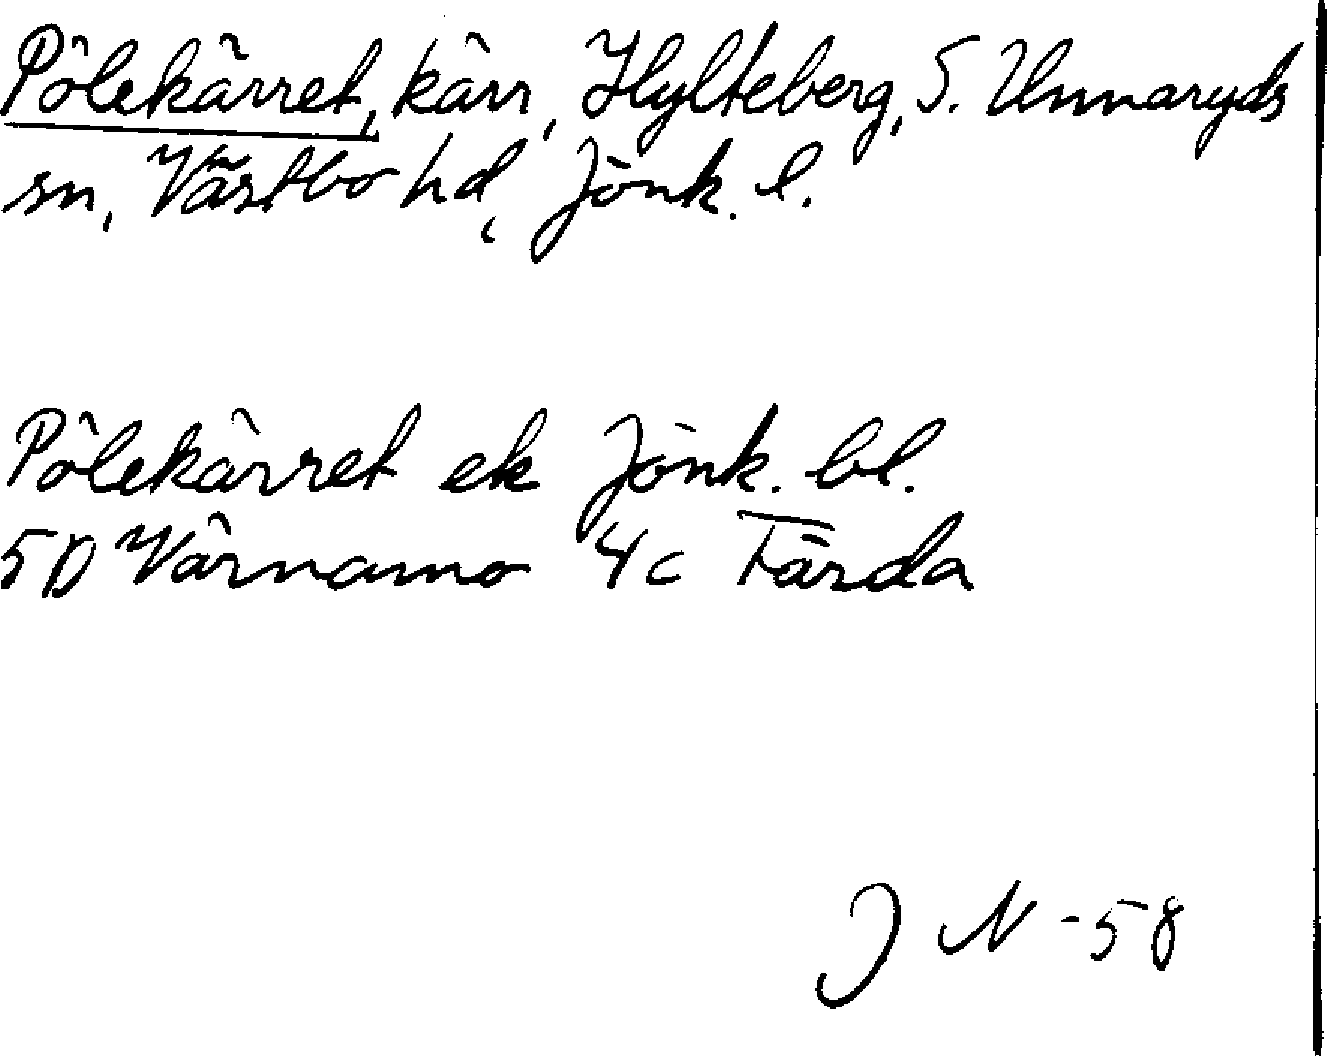 Pölekärret, kärr, Hylteberg, S. Unnaryds
sn, Västbo hd, Jönk. l.
Pölekärret ek Jönk. bl.
5D Värnamo 4c Färda
J N -58